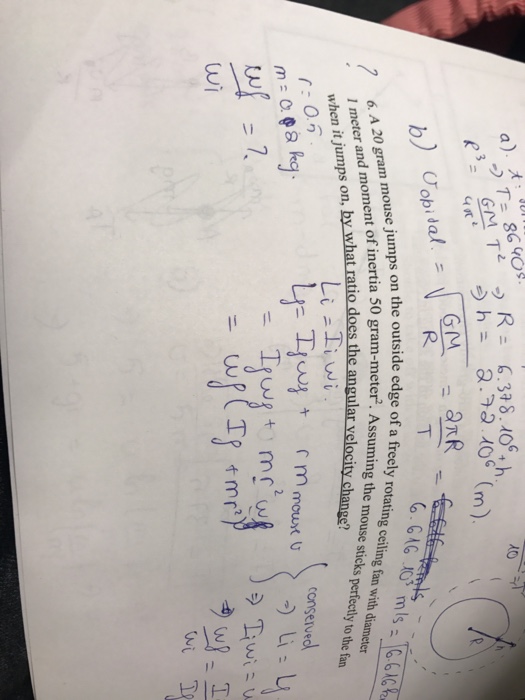 a). t:
=> T = 8640s.
R³ = GM/4π² T² => R = 6.378.10⁶ + h.
=> h = 2.72.10⁶ (m).
b) Vorbital = √GM/R = 2πR/T = 6.616.10³ m/s = 6.616
?
6. A 20 gram mouse jumps on the outside edge of a freely rotating ceiling fan with diameter
1 meter and moment of inertia 50 gram-meter². Assuming the mouse sticks perfectly to the fan
when it jumps on, by what ratio does the angular velocity change?
r = 0.5
m = 0.02 kg.
wf/wi = ?
Li = Iiwi.
Lf = Ifwf + rm mouse v
= Ifwf + mr²wf
= wf(If + mr²)
conserved
=> Li = Lf
=> Iiwi = w
=> wf/wi = I